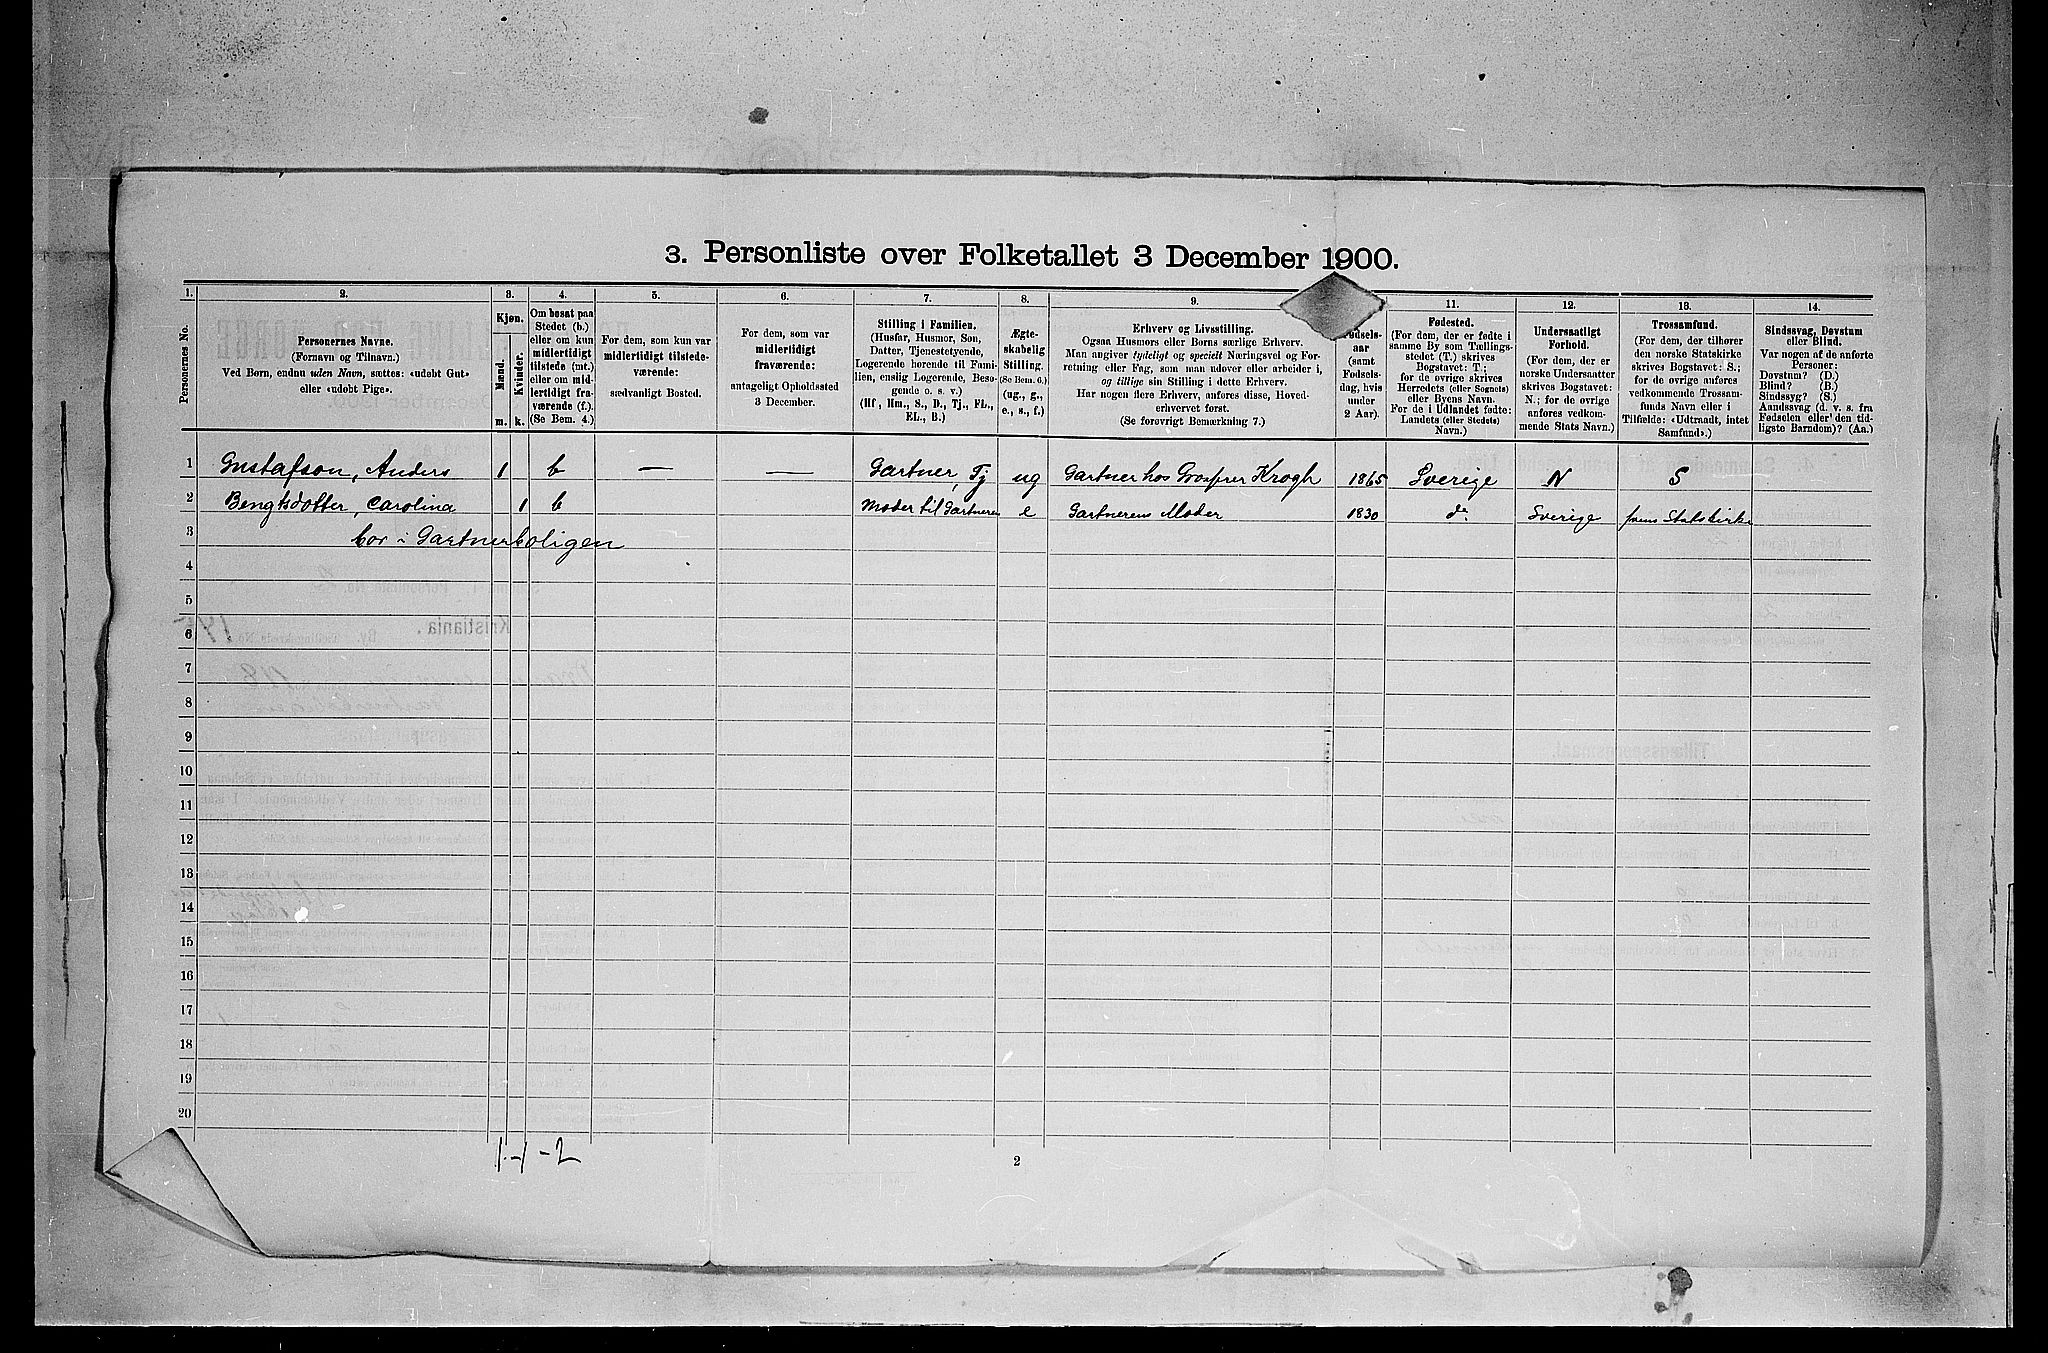 3. Personliste over Folketallet 3 December 1900.
1. 2. 3. 4. 5. 6. 7. 8. 9. 11. 12. 13. 14.
Personernes No.
Personernes Navne.
(Fornavn og Tilnavn.)
Ved Børn, endnu uden Navn, sættes: «udøbt Gut»
eller «udøbt Pige».
Kjøn.
Mænd.
Kvinder.
m. k.
Om bosat paa
Stedet (b.)
eller om kun
midlertidigt
tilstede (mt.)
eller om mid-
lertidigt fra-
værende (f.).
(Se Bem. 4.)
For dem, som kun var
midlertidigt tilstede-
værende:
sædvanligt Bosted.
For dem, som var
midlertidigt
fraværende:
antageligt Opholdssted
3 December.
Stilling i Familien.
(Husfar, Husmor, Søn,
Datter, Tjenestetyende,
Logerende hørende til Fami-
lien, enslig Logerende, Besø-
gende o. s. v.)
(Hf., Hm., S., D., Tj., FL.,
EL., B.)
Ægte-
skabelig
Stilling.
(Se Bem. 6.)
(ug., g.,
e., s., f.)
Erhverv og Livsstilling.
Ogsaa Husmors eller Børns særlige Erhverv.
Man angiver tydeligt og specielt Næringsvei og For-
retning eller Fag, som man udøver eller arbeider i,
og tillige sin Stilling i dette Erhverv.
Har nogen flere Erhverv, anføres disse, Hoved-
erhvervet først.
(Se forøvrigt Bemærkning 7.)
Fødsels-
aar
(samt
Fødsels-
dag, hvis
under
2 Aar).
Fødested.
(For dem, der er fødte i
samme By som Tællings-
stedet (T.) skrives
Bogstavet: T.;
for de øvrige skrives
Herredets (eller Sognets)
eller Byens Navn.
For de i Udlandet fødte:
Landets (eller Stedets)
Navn.)
Undersaatligt
Forhold.
(For dem, der er
norske Undersaatter
skrives Bogstavet:
N.; for de øvrige
anføres vedkom-
mende Stats Navn.)
Trossamfund.
(For dem, der tilhører
den norske Statskirke
skrives Bogstavet: S.;
for de øvrige anføres
vedkommende Trossam-
funds Navn eller i
Tilfælde: «Udtraadt, intet
Samfund».)
Sindssvag, Døvstum
eller Blind.
Var nogen af de anførte
Personer:
Døvstum? (D.)
Blind? (B.)
Sindssyg? (S.)
Aandssvag (d. v. s. fra
Fødselen eller den tid-
ligste Barndom)? (Aa.)
1 Gustafson, Anders 1 b — — Gartner, Tj ug Gartner hos Grosserer Krogh 1865 Sverige N S
2 Bengtsdotter, Carolina 1 b Moder til Gartneren e Gartnerens Moder 1830 do Sverige svens Statskirke
3 bor i Gartnerboligen
4
5
6
7
8
9
10
11
12
13
14
15
16
17
18
19
20
1 - 1 - 2
2